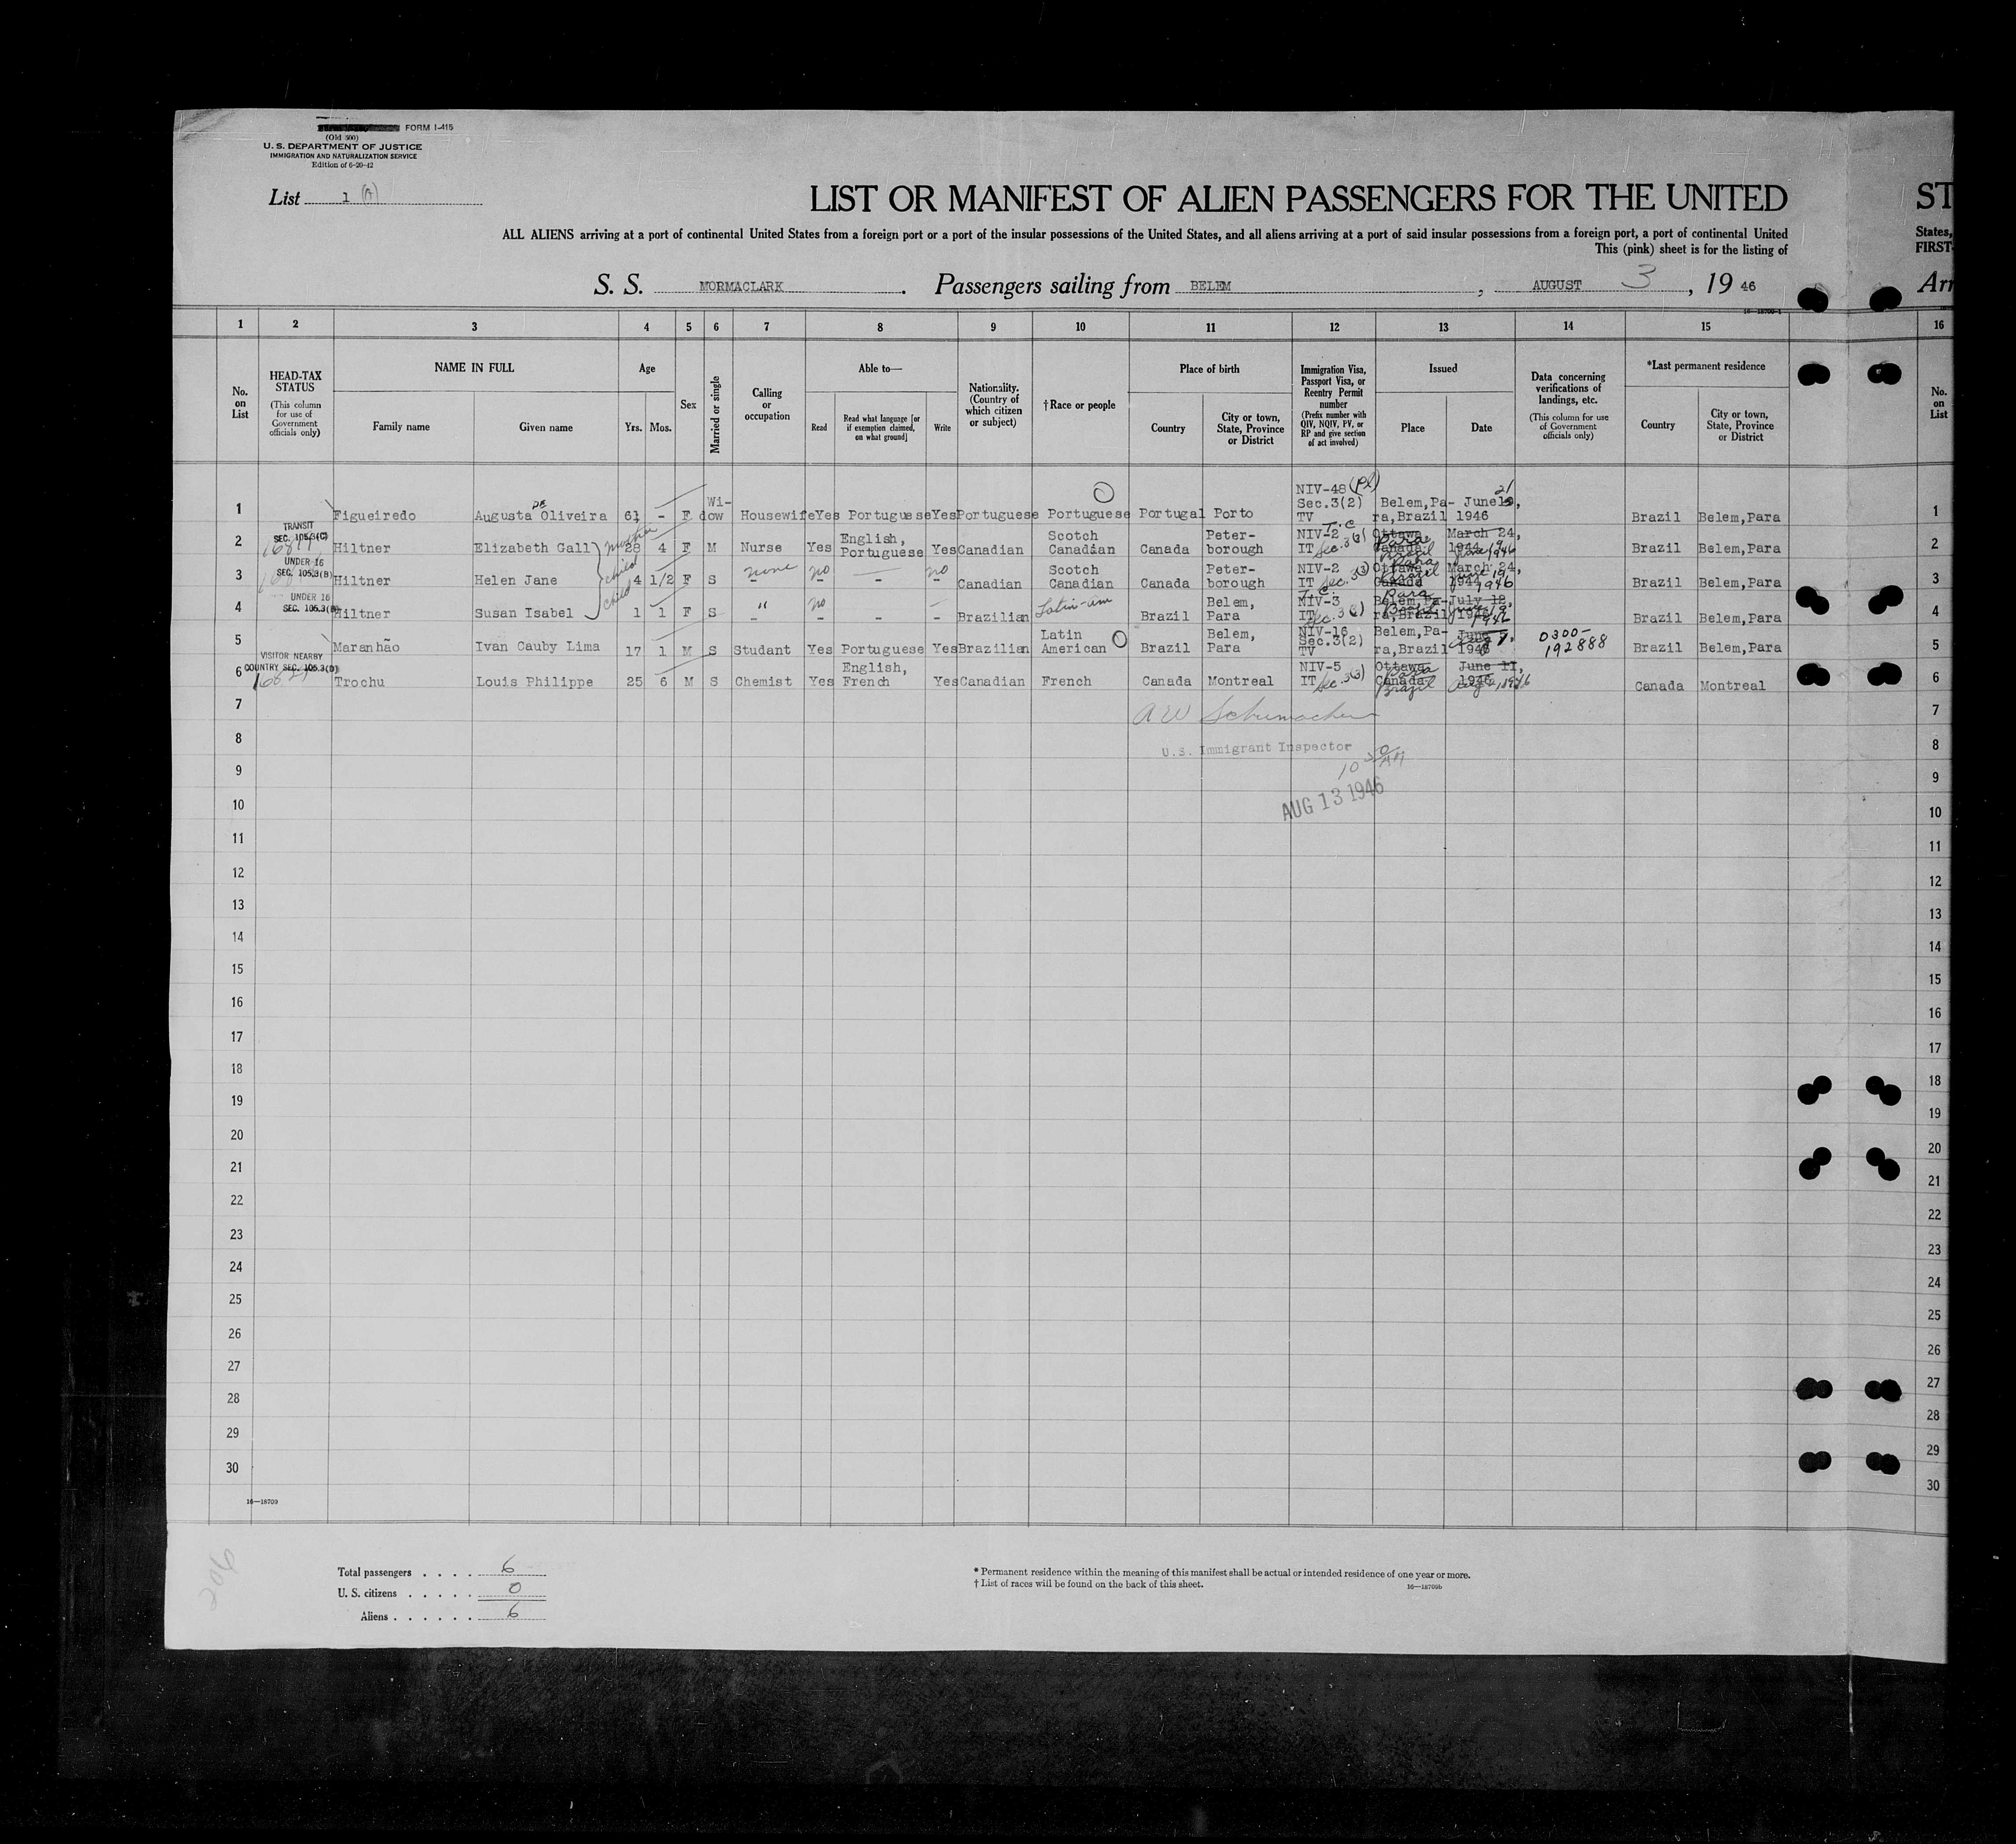 FORM I-415
(Old 500)
U. S. DEPARTMENT OF JUSTICE
IMMIGRATION AND NATURALIZATION SERVICE
Edition of 6-20-42
List 1 (A)
LIST OR MANIFEST OF ALIEN PASSENGERS FOR THE UNITED
ST
ALL ALIENS arriving at a port of continental United States from a foreign port or a port of the insular possessions of the United States, and all aliens arriving at a port of said insular possessions from a foreign port, a port of continental United
States,
This (pink) sheet is for the listing of
FIRST-
S. S. MORMACLARK . Passengers sailing from BELEM , AUGUST 3 , 19 46
Arr
1 2 3 4 5 6 7 8 9 10 11 12 13 14 15 16
No. on List
HEAD-TAX STATUS
(This column for use of Government officials only)
NAME IN FULL
Family name
Given name
Age
Yrs. Mos.
Sex
Married or single
Calling or occupation
Able to—
Read
Read what language [or if exemption claimed, on what ground]
Write
Nationality. (Country of which citizen or subject)
†Race or people
Place of birth
Country
City or town, State, Province or District
Immigration Visa, Passport Visa, or Reentry Permit number
(Prefix number with QIV, NQIV, PV, or RP and give section of act involved)
Issued
Place
Date
Data concerning verifications of landings, etc.
(This column for use of Government officials only)
*Last permanent residence
Country
City or town, State, Province or District
No. on List
1 Figueiredo Augusta de Oliveira 61 - F Wi-dow Housewife Yes Portuguese Yes Portuguese Portuguese Portugal Porto NIV-48 Sec.3(2) TV Belem,Pa-ra,Brazil June 21, 1946 Brazil Belem,Para 1
2 TRANSIT SEC. 105.3(C) Hiltner Elizabeth Gall mother 28 4 F M Nurse Yes English, Portuguese Yes Canadian Scotch Canadian Canada Peter-borough NIV-2 IT Sec. 3(3) T.C. Ottawa Canada Para Brazil March 24, 1944 June 19 1946 Brazil Belem,Para 2
3 UNDER 16 SEC. 105.3(B) Hiltner Helen Jane child 4 1/2 F S none no - no Canadian Scotch Canadian Canada Peter-borough NIV-2 IT Sec. 3(3) Ottawa Canada Para Brazil March 24, 1944 June 19 1946 Brazil Belem,Para 3
4 UNDER 16 SEC. 105.3(B) Hiltner Susan Isabel child 1 1 F S " no - - Brazilian Latin-am Brazil Belem, Para T.C. NIV-3 IT Sec. 3(3) Belem,Pa-ra,Brazil Para Brazil July 18, 1946 June 19 1946 Brazil Belem,Para 4
5 Maranhão Ivan Cauby Lima 17 1 M S Studant Yes Portuguese Yes Brazilian Latin American Brazil Belem, Para NIV-16 Sec.3(2) TV Belem,Pa-ra,Brazil June 1946 0300-192888 Brazil Belem,Para 5
6 VISITOR NEARBY COUNTRY SEC. 105.3(D) Trochu Louis Philippe 25 6 M S Chemist Yes English, French Yes Canadian French Canada Montreal NIV-5 IT Sec. 3(3) Ottawa Canada Para Brazil June 11, 1946 Canada Montreal 6
7 A W Schumacher 7
8 U.S. Immigrant Inspector 8
9 10 50 AM 9
10 AUG 13 1946 10
11 11
12 12
13 13
14 14
15 15
16 16
17 17
18 18
19 19
20 20
21 21
22 22
23 23
24 24
25 25
26 26
27 27
28 28
29 29
30 30
16—18709
206
Total passengers . . . . 6
U. S. citizens . . . . . 0
Aliens . . . . . . 6
* Permanent residence within the meaning of this manifest shall be actual or intended residence of one year or more.
† List of races will be found on the back of this sheet.
16—18709b